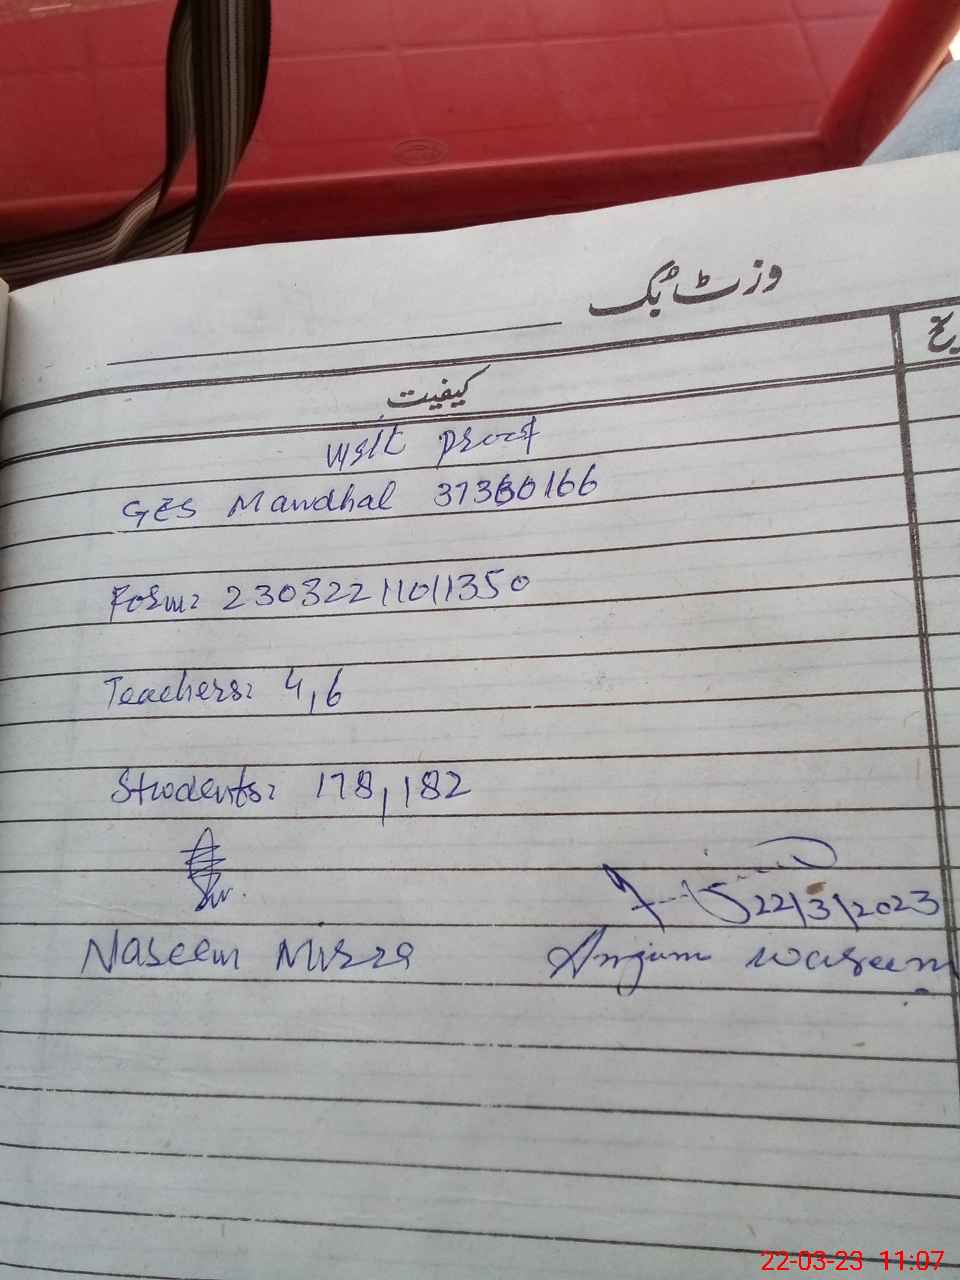 وزٹ بک
کیفیت
visit proof
GES Mandhal 37360166
Form: 23032211011350
Teachers: 4,6
Students: 178,182
22/3/2023
Naseem Mirza
Anjum waseem
22-03-23 11:07